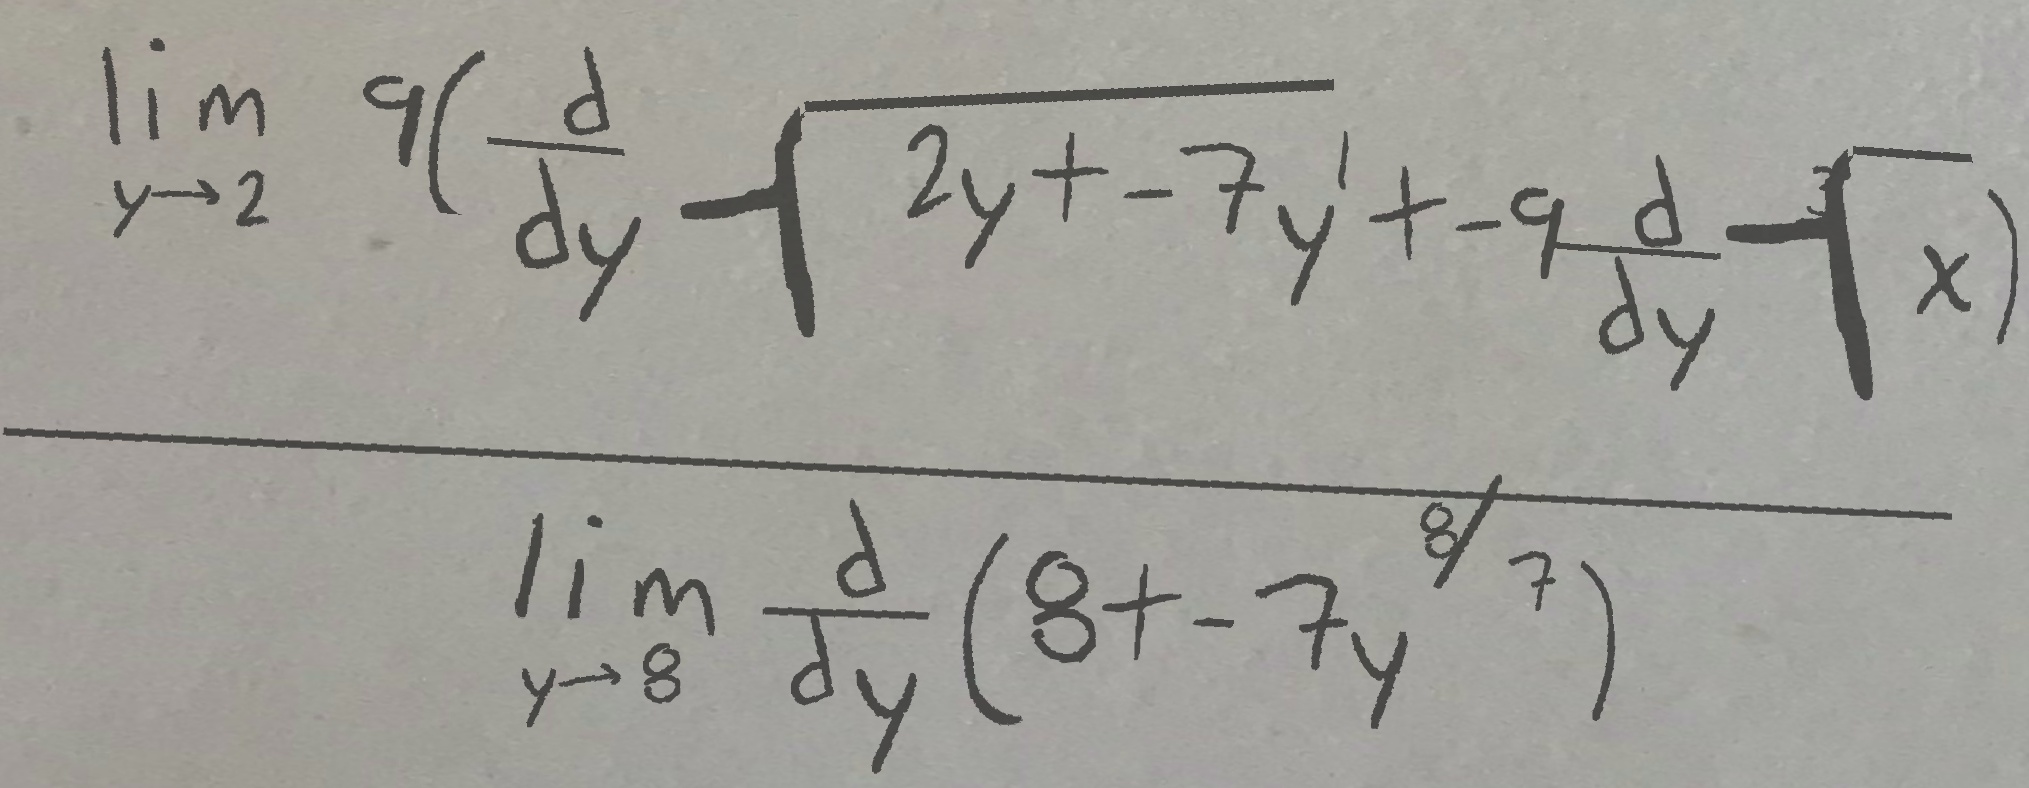 \frac{\lim_{y \to 2} 9 ( \frac{d}{dy} \sqrt{2y + -7y^{1}} + -9 \frac{d}{dy} \sqrt[3]{x} )}{\lim_{y \to 8} \frac{d}{dy} ( 8 + -7y^{8/7} )}